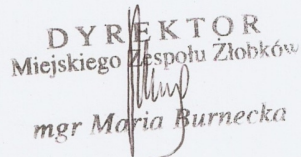 DYREKTOR
Miejskiego Zespołu Żłobków
mgr Maria Burnecka